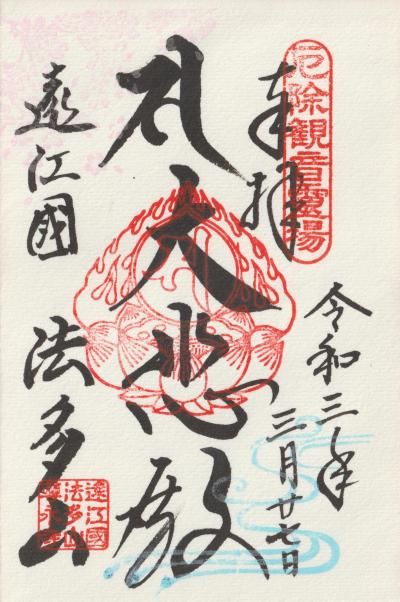 厄除観音霊場
奉拝
令和三年
三月廿七日
大悲殿
遠江國
法多山
遠江國
法多山